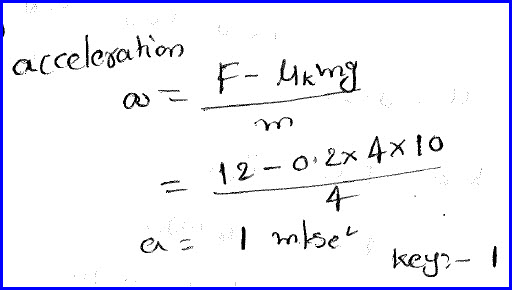 acceleration
a = F - μkmg / m
= 12 - 0.2 x 4 x 10 / 4
a = 1 m/se²
key:- 1